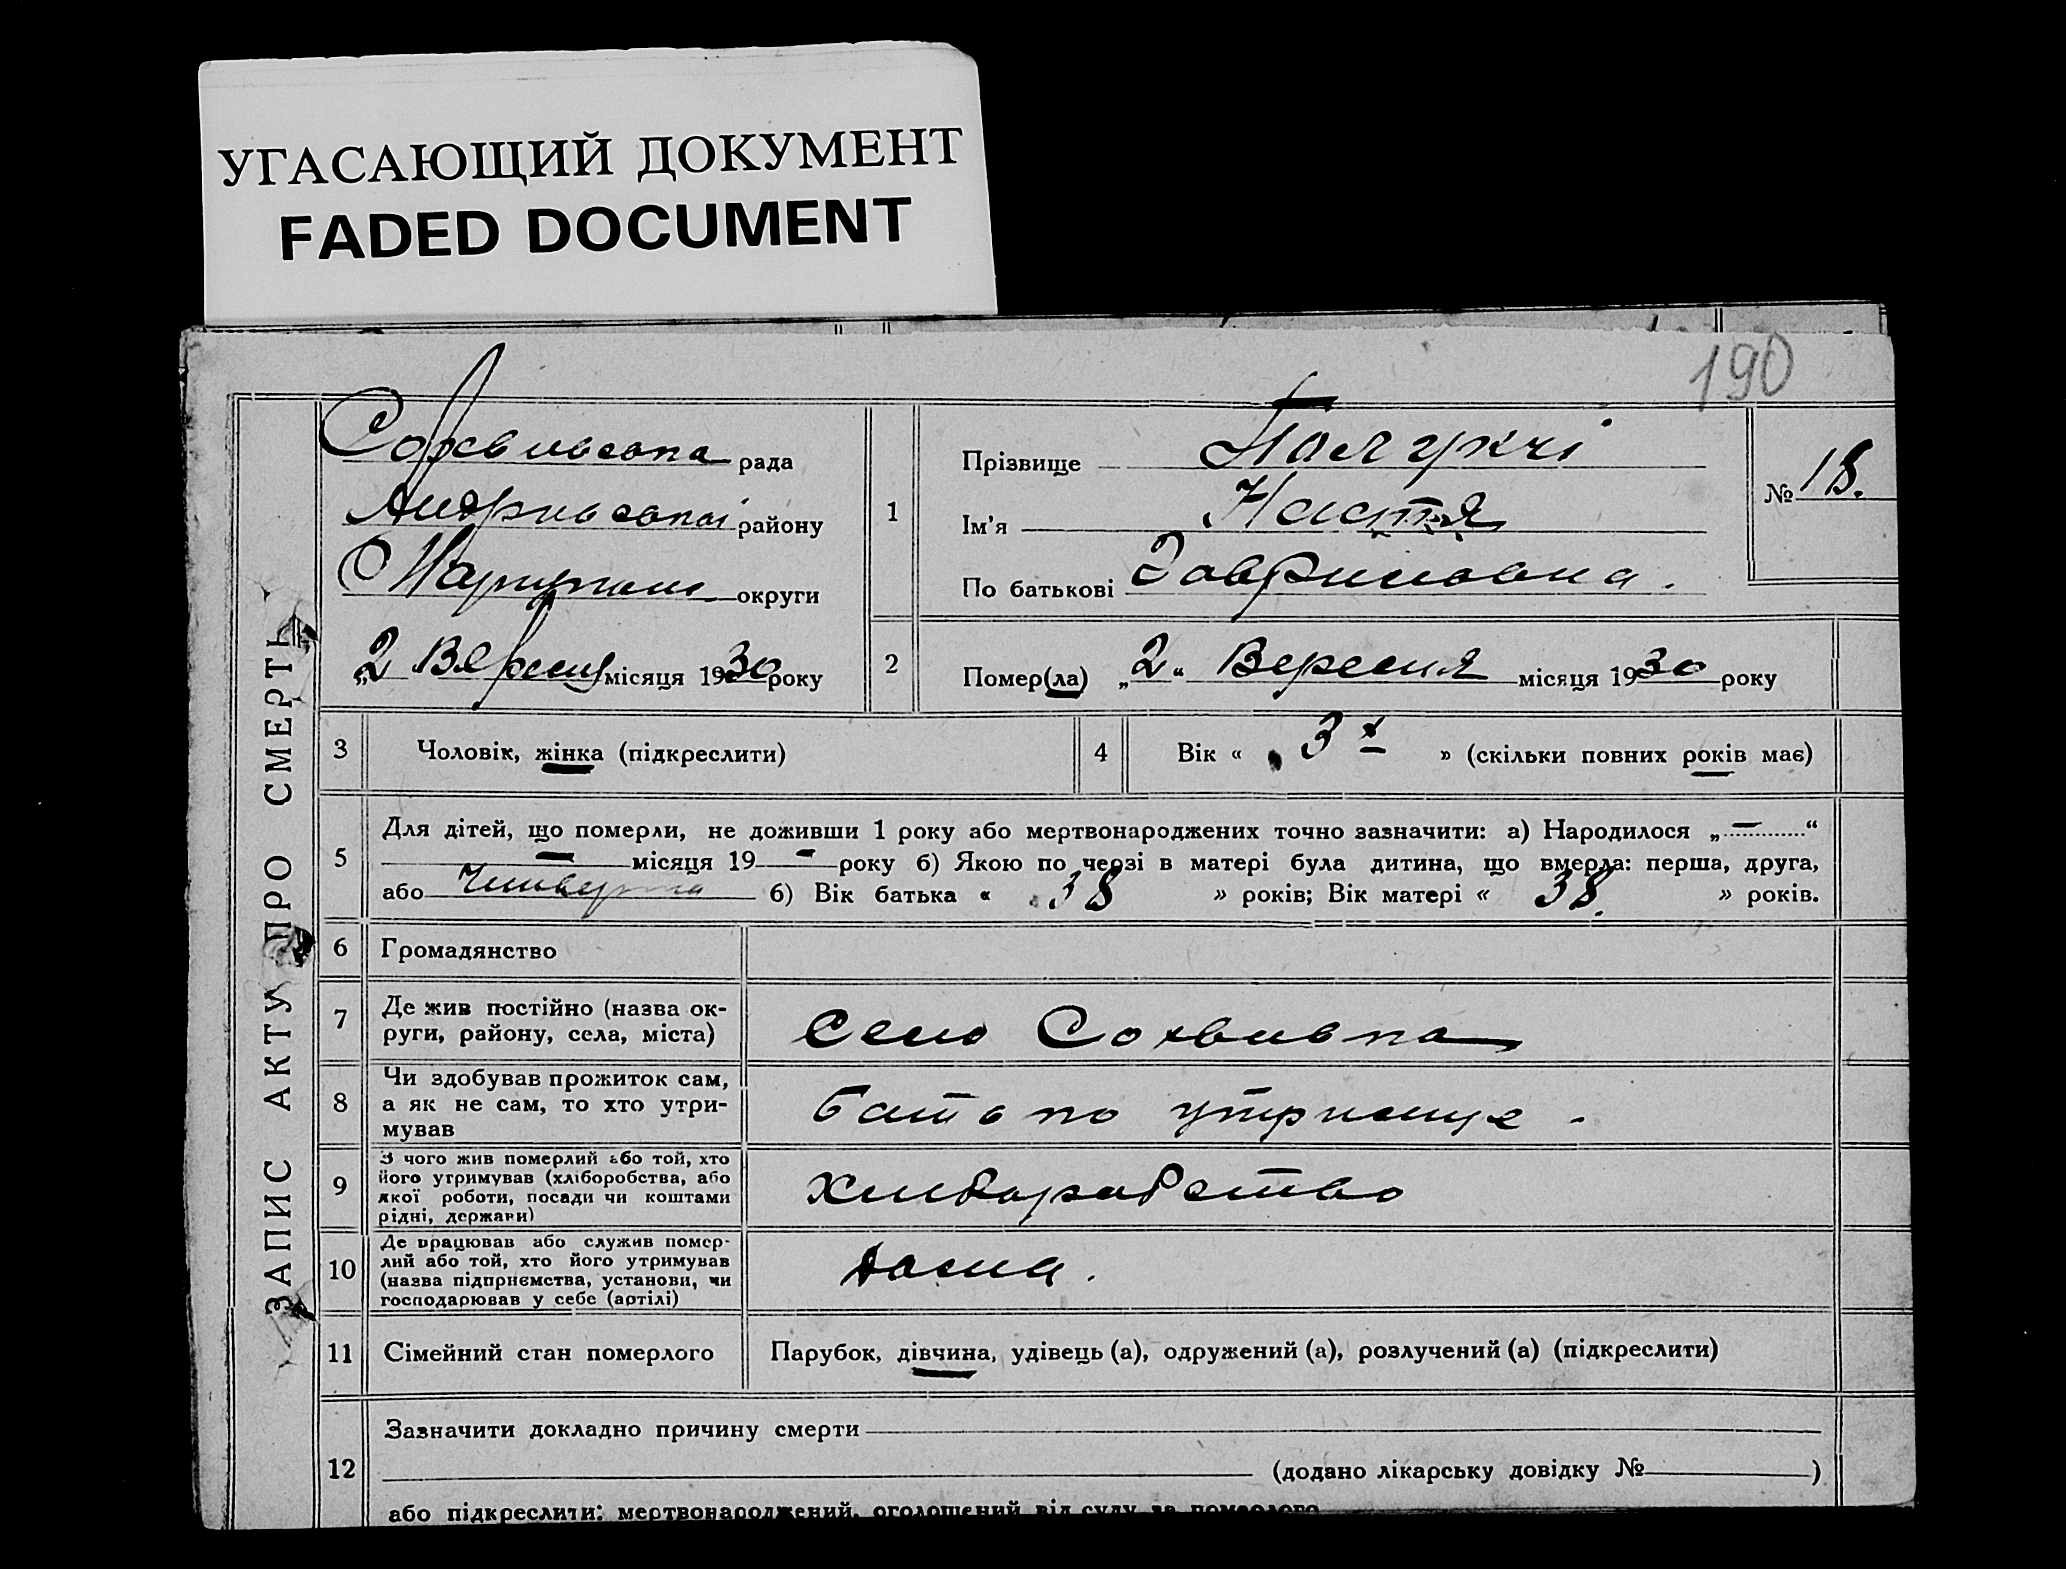 УГАСАЮЩИЙ ДОКУМЕНТ
FADED DOCUMENT
190
ЗАПИС АКТУ ПРО СМЕРТЬ
рада
району
округи
„2 місяця 1930 року
1
Прізвище
Ім'я Настя
По батькові
№ 18.
2
Помер(ла) „2“ Вересня місяця 1930 року
3 Чоловік, жінка (підкреслити)
4 Вік « 3х » (скільки повних років має)
5
Для дітей, що померли, не доживши 1 року або мертвонароджених точно зазначити: а) Народилося „ — “
— місяця 19 - року б) Якою по черзі в матері була дитина, що вмерла: перша, друга,
або б) Вік батька « 38 » років; Вік матері « 38 » років.
6 Громадянство
7
Де жив постійно (назва ок-
руги, району, села, міста)
Село
8
Чи здобував прожиток сам,
а як не сам, то хто утри-
мував
Батько утримує
9
З чого жив померлий або той, хто
його утримував (хліборобства, або
якої роботи, посади чи коштами
рідні, держави)
10
Де працював або служив помер-
лий або той, хто його утримував
(назва підприємства, установи, чи
господарював у себе (артілі)
дома.
11 Сімейний стан померлого
Парубок, дівчина, удівець (а), одружений (а), розлучений (а) (підкреслити)
12
Зазначити докладно причину смерти
(додано лікарську довідку № )
або підкреслити: мертвонароджений, оголошений від суду за померлого